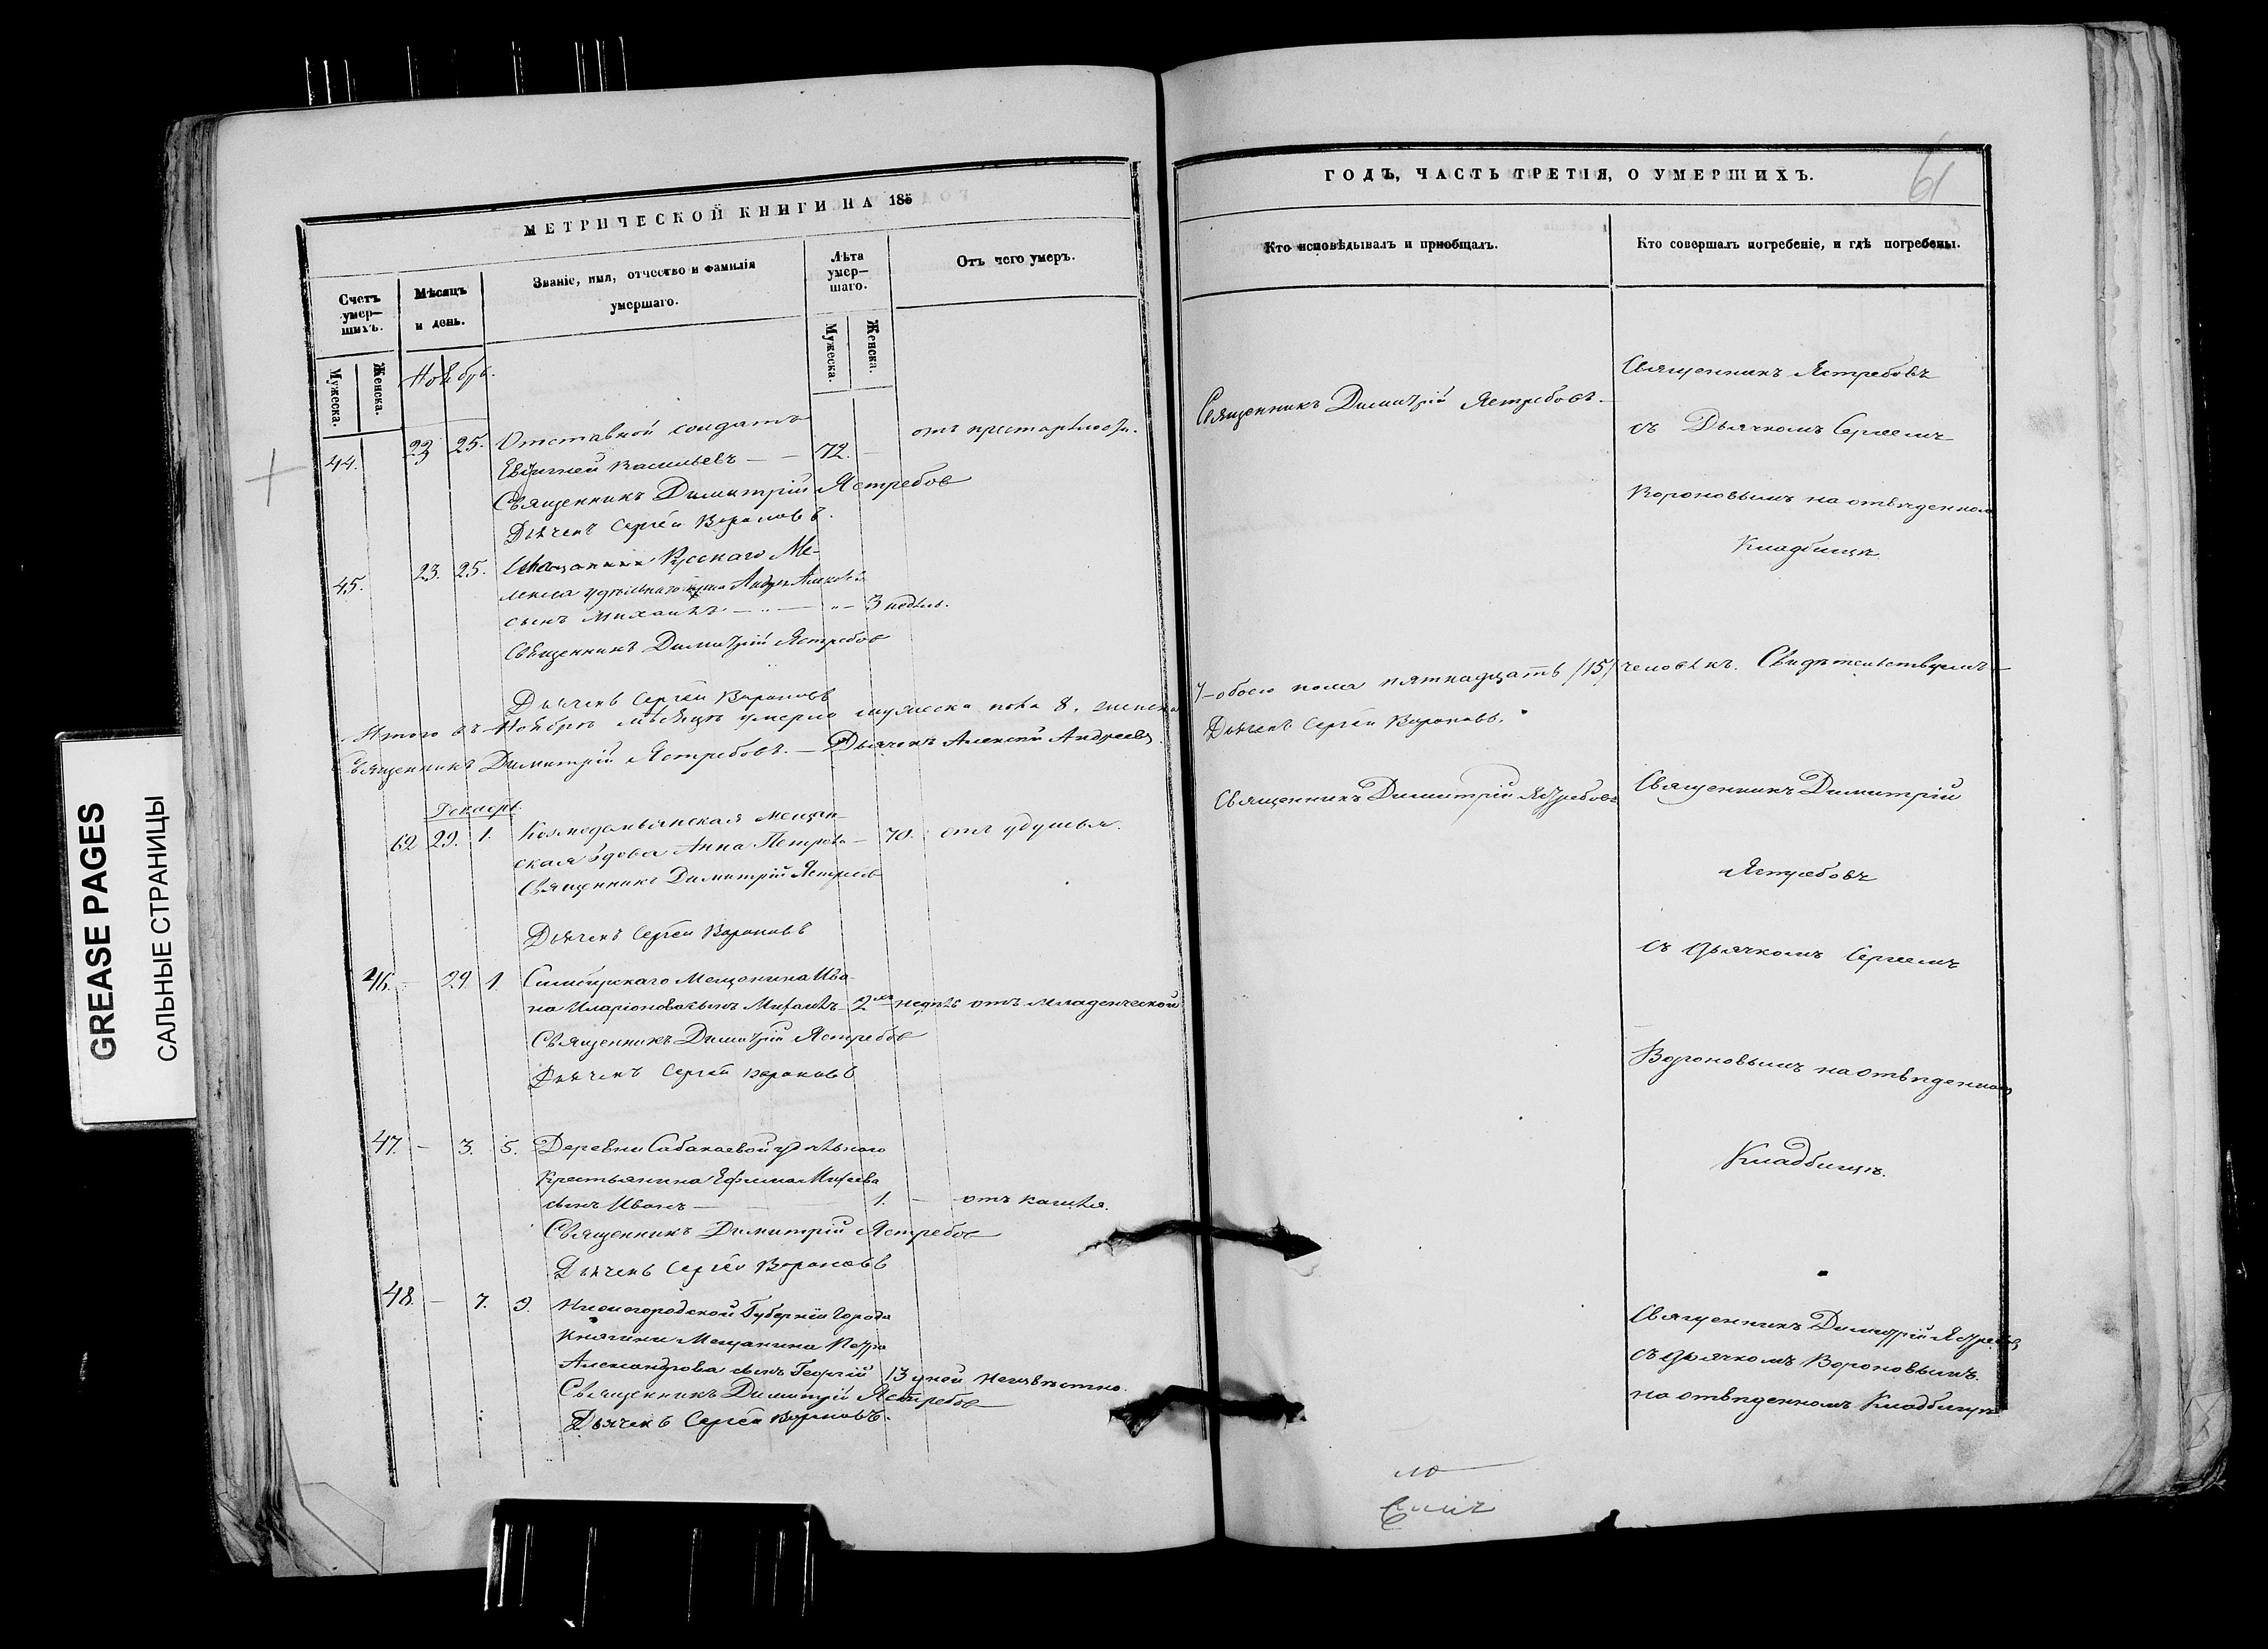 GREASE PAGES
САЛЬНЫЕ СТРАНИЦЫ
МЕТРИЧЕСКОЙ КНИГИ НА 185
Счетъ умер-
шихъ.
Мужеска.
Женска.
Мѣсяцъ
и день.
Званіе, имя, отчество и фамилія
умершаго.
Лѣта
умер-
шаго.
Мужеска.
Женска.
Отъ чего умеръ.
Ноябрь.
44. 23 25. Отставной солдатъ
Васильевъ — 72. — отъ престарѣлости.
Священникъ Димитрій Ястребов
Дьячекъ Сергѣй Вороновъ.
45. 23. 25. Русскаго Ме-
лекеса удѣльнаго
сынъ Михаилъ — 3 недѣль.
Священникъ Димитрій Ястребов
Дьячекъ Сергѣй Вороновъ
Итого въ Ноябрѣ мѣсяцѣ умерло мужеска пола 8, женска
Священникъ Димитрій Ястребовъ. — Дьячокъ Алексѣй Андреевъ.
Декабрь.
62 29. 1. Козмодемьянская мещан-
ская вдова Анна Петрова — 70. отъ удушья.
Священникъ Димитрій Ястребов
Дьячекъ Сергѣй Вороновъ
46. — 29 1 Симбирскаго Мещанина Ива-
на Иларіонова сынъ Михаилъ — 2хъ недѣль отъ младенческой
Священникъ Димитрій Ястребов
Дьячекъ Сергѣй Вороновъ
47. — 3. 5. Деревни Сабакаевой удѣльнаго
Крестьянина Ефима Михеева
сынъ Иванъ — 1. — отъ кашля.
Священникъ Димитрій Ястребов
Дьячекъ Сергѣй Вороновъ
48. — 7. 9. Нижегородской Губерніи Города
Княгини Мещанина Петра
Александрова сынъ Георгій 13 дней неизвѣстно.
Священникъ Димитрій Ястребов
Дьячекъ Сергѣй Вороновъ.
ГОДЪ, ЧАСТЬ ТРЕТІЯ, О УМЕРШИХЪ.
61
Кто исповѣдывалъ и пріобщалъ.
Кто совершалъ погребеніе, и гдѣ погребены.
Священникъ Димитрій Ястребовъ.
Священникъ Ястребовъ
съ Дьячкомъ Сергеемъ
Вороновымъ на отвѣденном
Кладбищѣ
7 — обоего пола пятнадцать /15/ человѣкъ. Свидѣтельствуемъ
Дьячекъ Сергѣй Вороновъ.
Священникъ Димитрій Ястребовъ
Священникъ Димитрій
Ястребовъ
съ дьячкомъ Сергеемъ
Вороновымъ на отвѣденномъ
Кладбищѣ.
Священникъ Димитрій Ястребовъ
съ дьячкомъ Вороновымъ
на отвѣденномъ Кладбищѣ